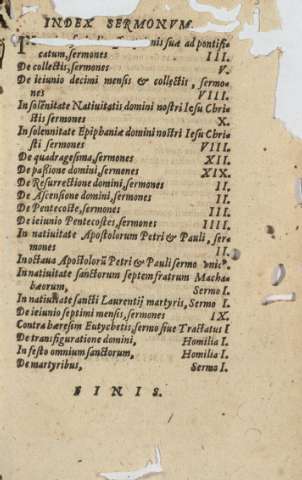 INDEX SERMONVM.
nis suæ ad pontifi-
catum, sermones III.
De collectis, sermones V.
De ieiunio decimi mensis & collectis, sermo-
nes VIII.
In solēnitate Natiuitatis domini nostri Iesu Chri-
sti sermones X.
In solennitate Epiphaniæ domini nostri Iesu Chri-
sti sermones VIII.
De quadragesima, sermones XII.
De passione domini, sermones XIX.
De Resurrectione domini, sermones II.
De Ascensione domini, sermones II.
De Pentecoste, sermones III.
De ieiunio Pentecostes, sermones IIII.
In natiuitate Apostolorum Petri & Pauli, ser-
mones II.
In octaua Apostolorū Petri & Pauli sermo vnic⁹.
In natiuitate sanctorum septem fratrum Macha-
bæorum, Sermo I.
In natiuitate sancti Laurentij martyris, Sermo I.
De ieiunio septimi mensis, sermones IX.
Contra hæresim Eutychetis, sermo siue Tractatus I
De transfiguratione domini, Homilia I.
In festo omnium sanctorum, Homilia I.
De martyribus, Sermo I.
FINIS.